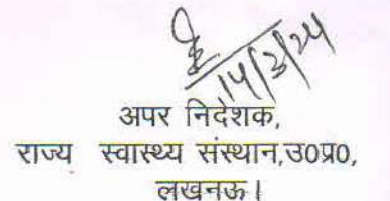 14/3/24
अपर निदेशक,
राज्य स्वास्थ्य संस्थान,उ0प्र0,
लखनऊ।